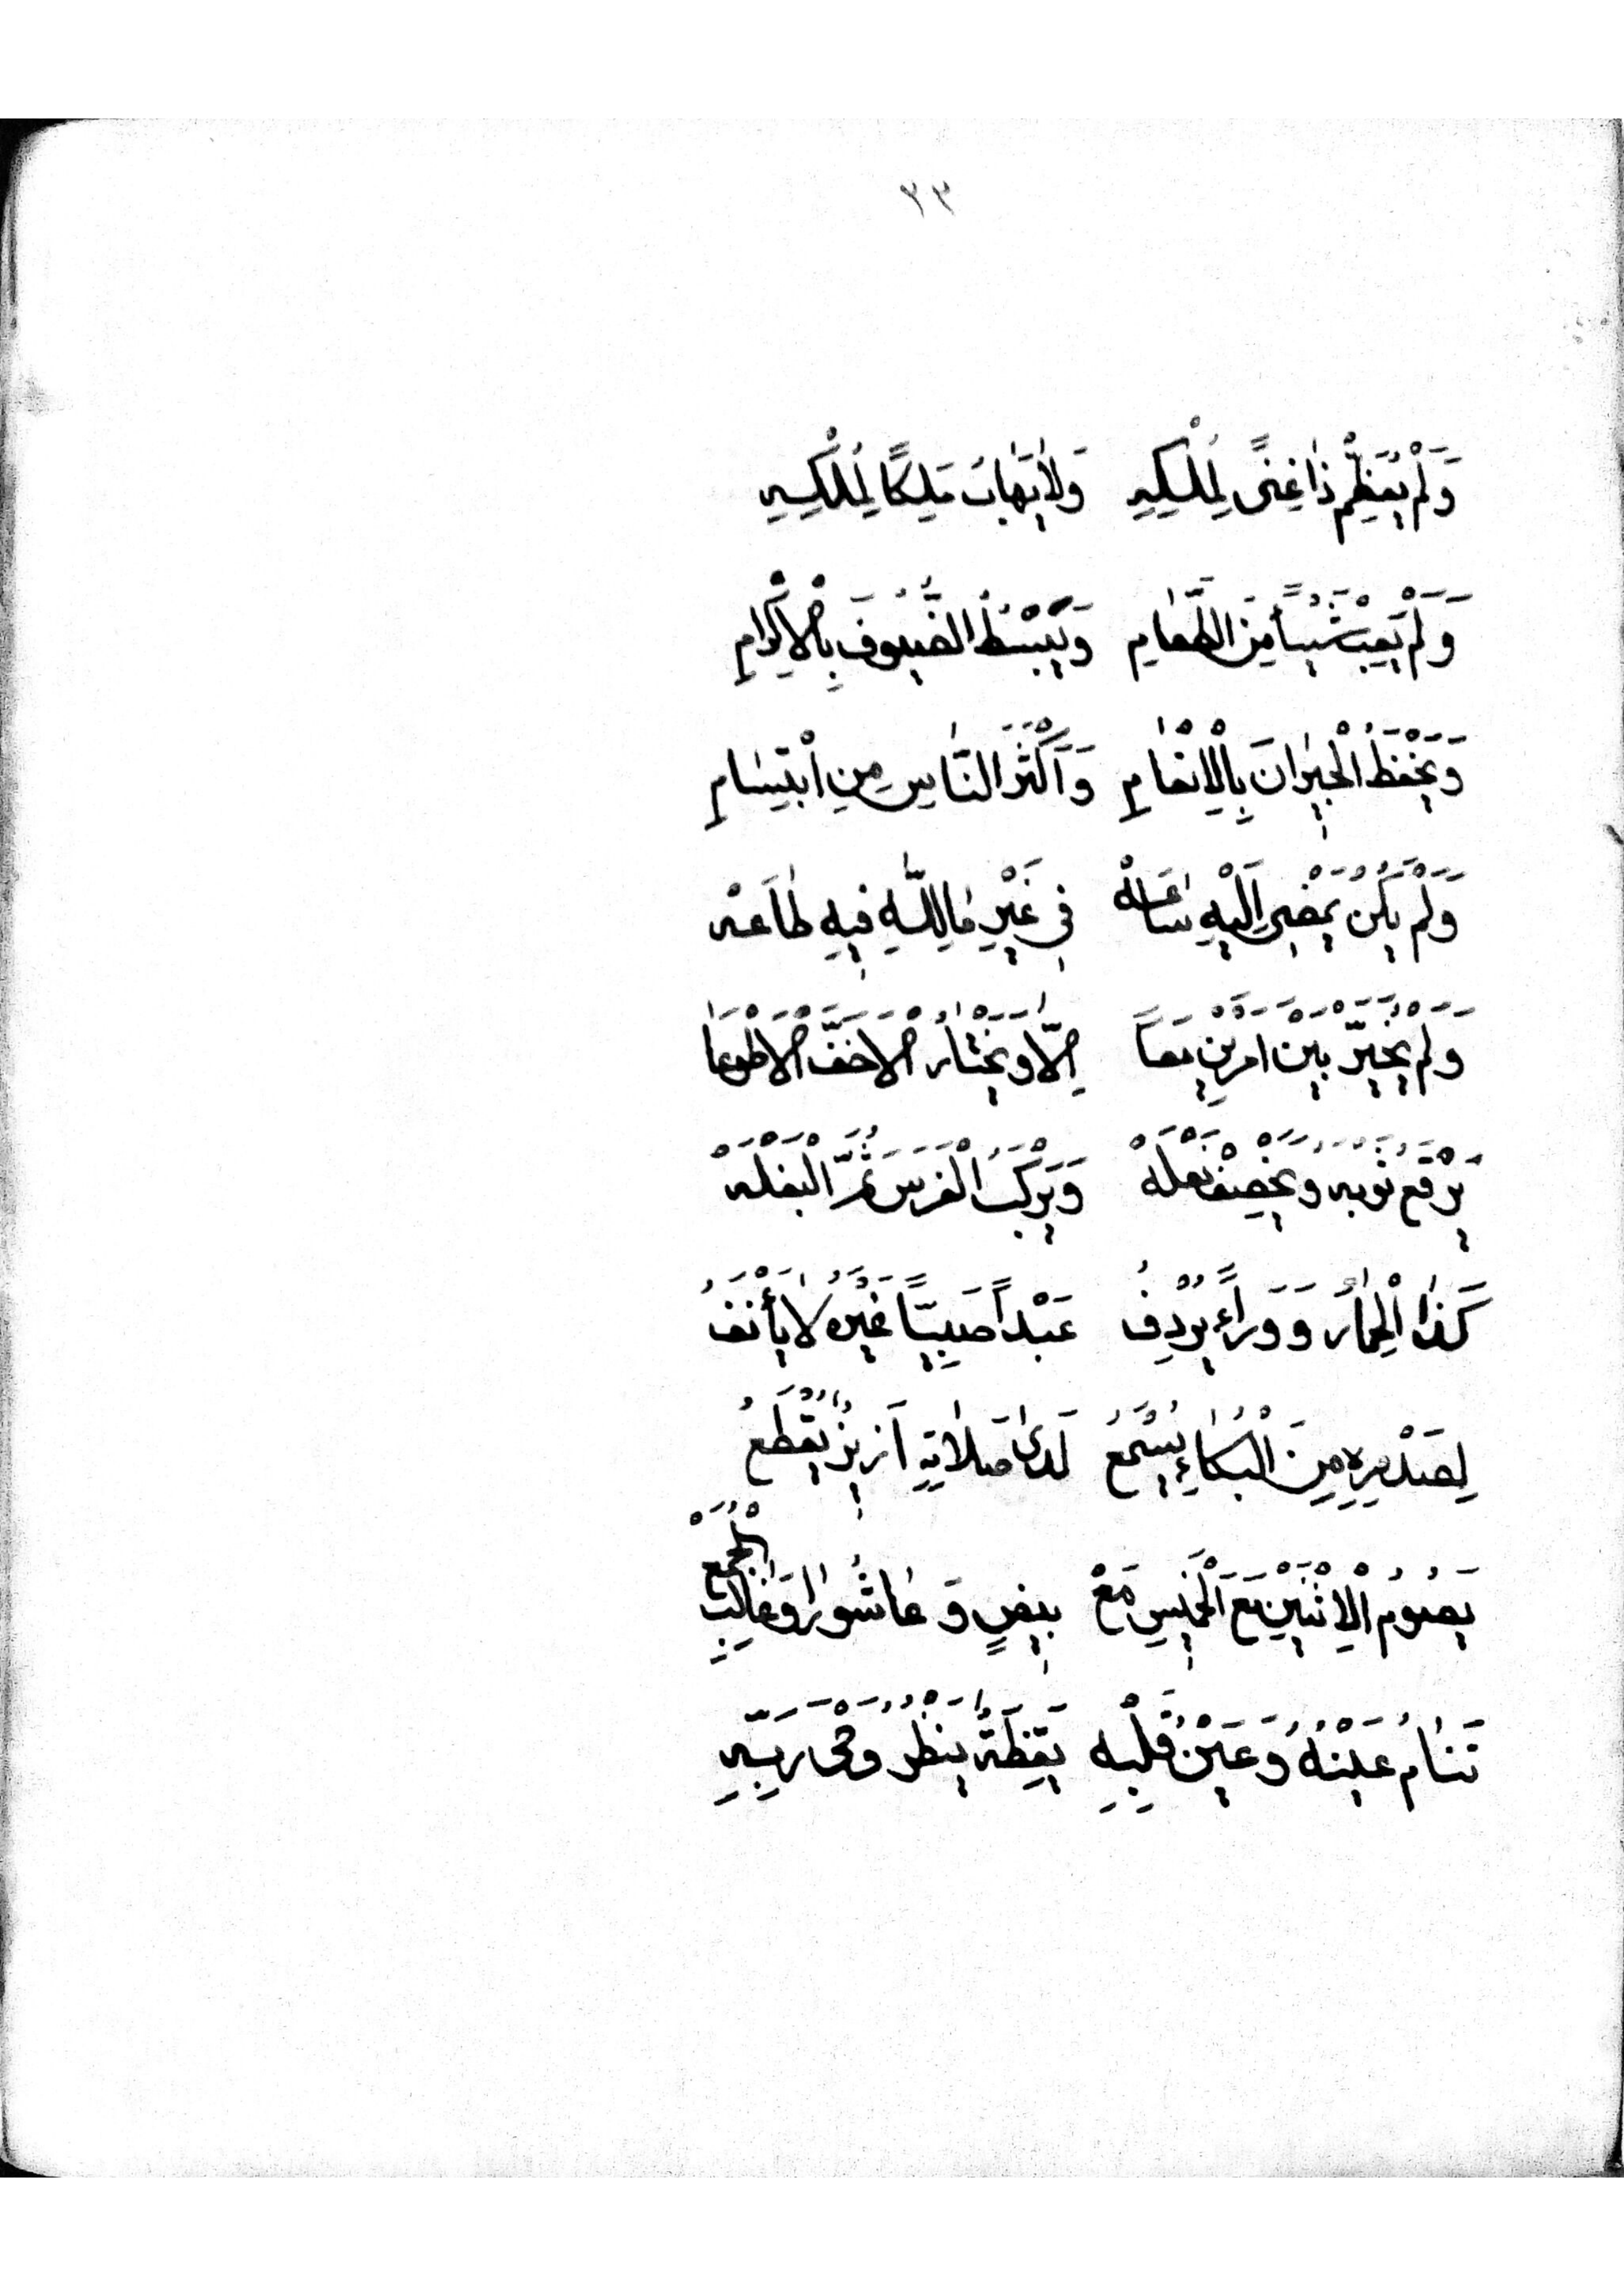 ٣٣
وَلَمْ يُعَظِّمْ ذَا غِنًى لِمُلْكِهِ وَلَا يَهَابُ مَلِكًا لِمُلْكِهِ
وَلَمْ يَعِبْ شَيْـًٔا مِنَ الطَّعَامِ وَيَبْسُطُ الضُّيُوفَ بِالْاِكْرَامِ
وَيَحْفَظُ الْجِيرَانَ بِالْاِنْعَامِ وَاَكْثَرَ النَّاسِ مِنِ ابْتِسَامِ
وَلَمْ يَكُنْ يَمْضِى اِلَيْهِ سَاعَهْ فِى غَيْرِ مَا لِلّٰهِ فِيهِ طَاعَهْ
وَلَمْ يُخَيَّرْ بَيْنَ اَمْرَيْنِ مَعَاً اِلَّا وَيَخْتَارُ الْاَخَفَّ الْاَطْوَعَا
يَرْقَعُ ثَوْبَهُ وَيَخْصِفْ نَعْلَهْ وَيَرْكَبُ الْفَرَسَ ثُمَّ الْبَغْلَهْ
كَذَا الْحِمَارُ وَوَرَاءً يُرْدِفُ عَبْداً صَبِيّاً غَيْرُهُ لَا يَأْنَفُ
لِصَدْرِهِ مِنَ الْبُكَاءِ يُسْمَعُ لَدَى صَلَاتِهِ اَزِيزٌ يُقْطَعُ
يَصُومُ الْاِثْنَيْنِ مَعَ الْخَمِيسِ مَعْ بِيضٍ وَعَاشُورَا وَغَالِبِ الْجُمَعْ
تَنَامُ عَيْنُهُ وَعَيْنُ قَلْبِهِ يَقِظَةٌ يَنْظُرُ وَحْىَ رَبِّهِ